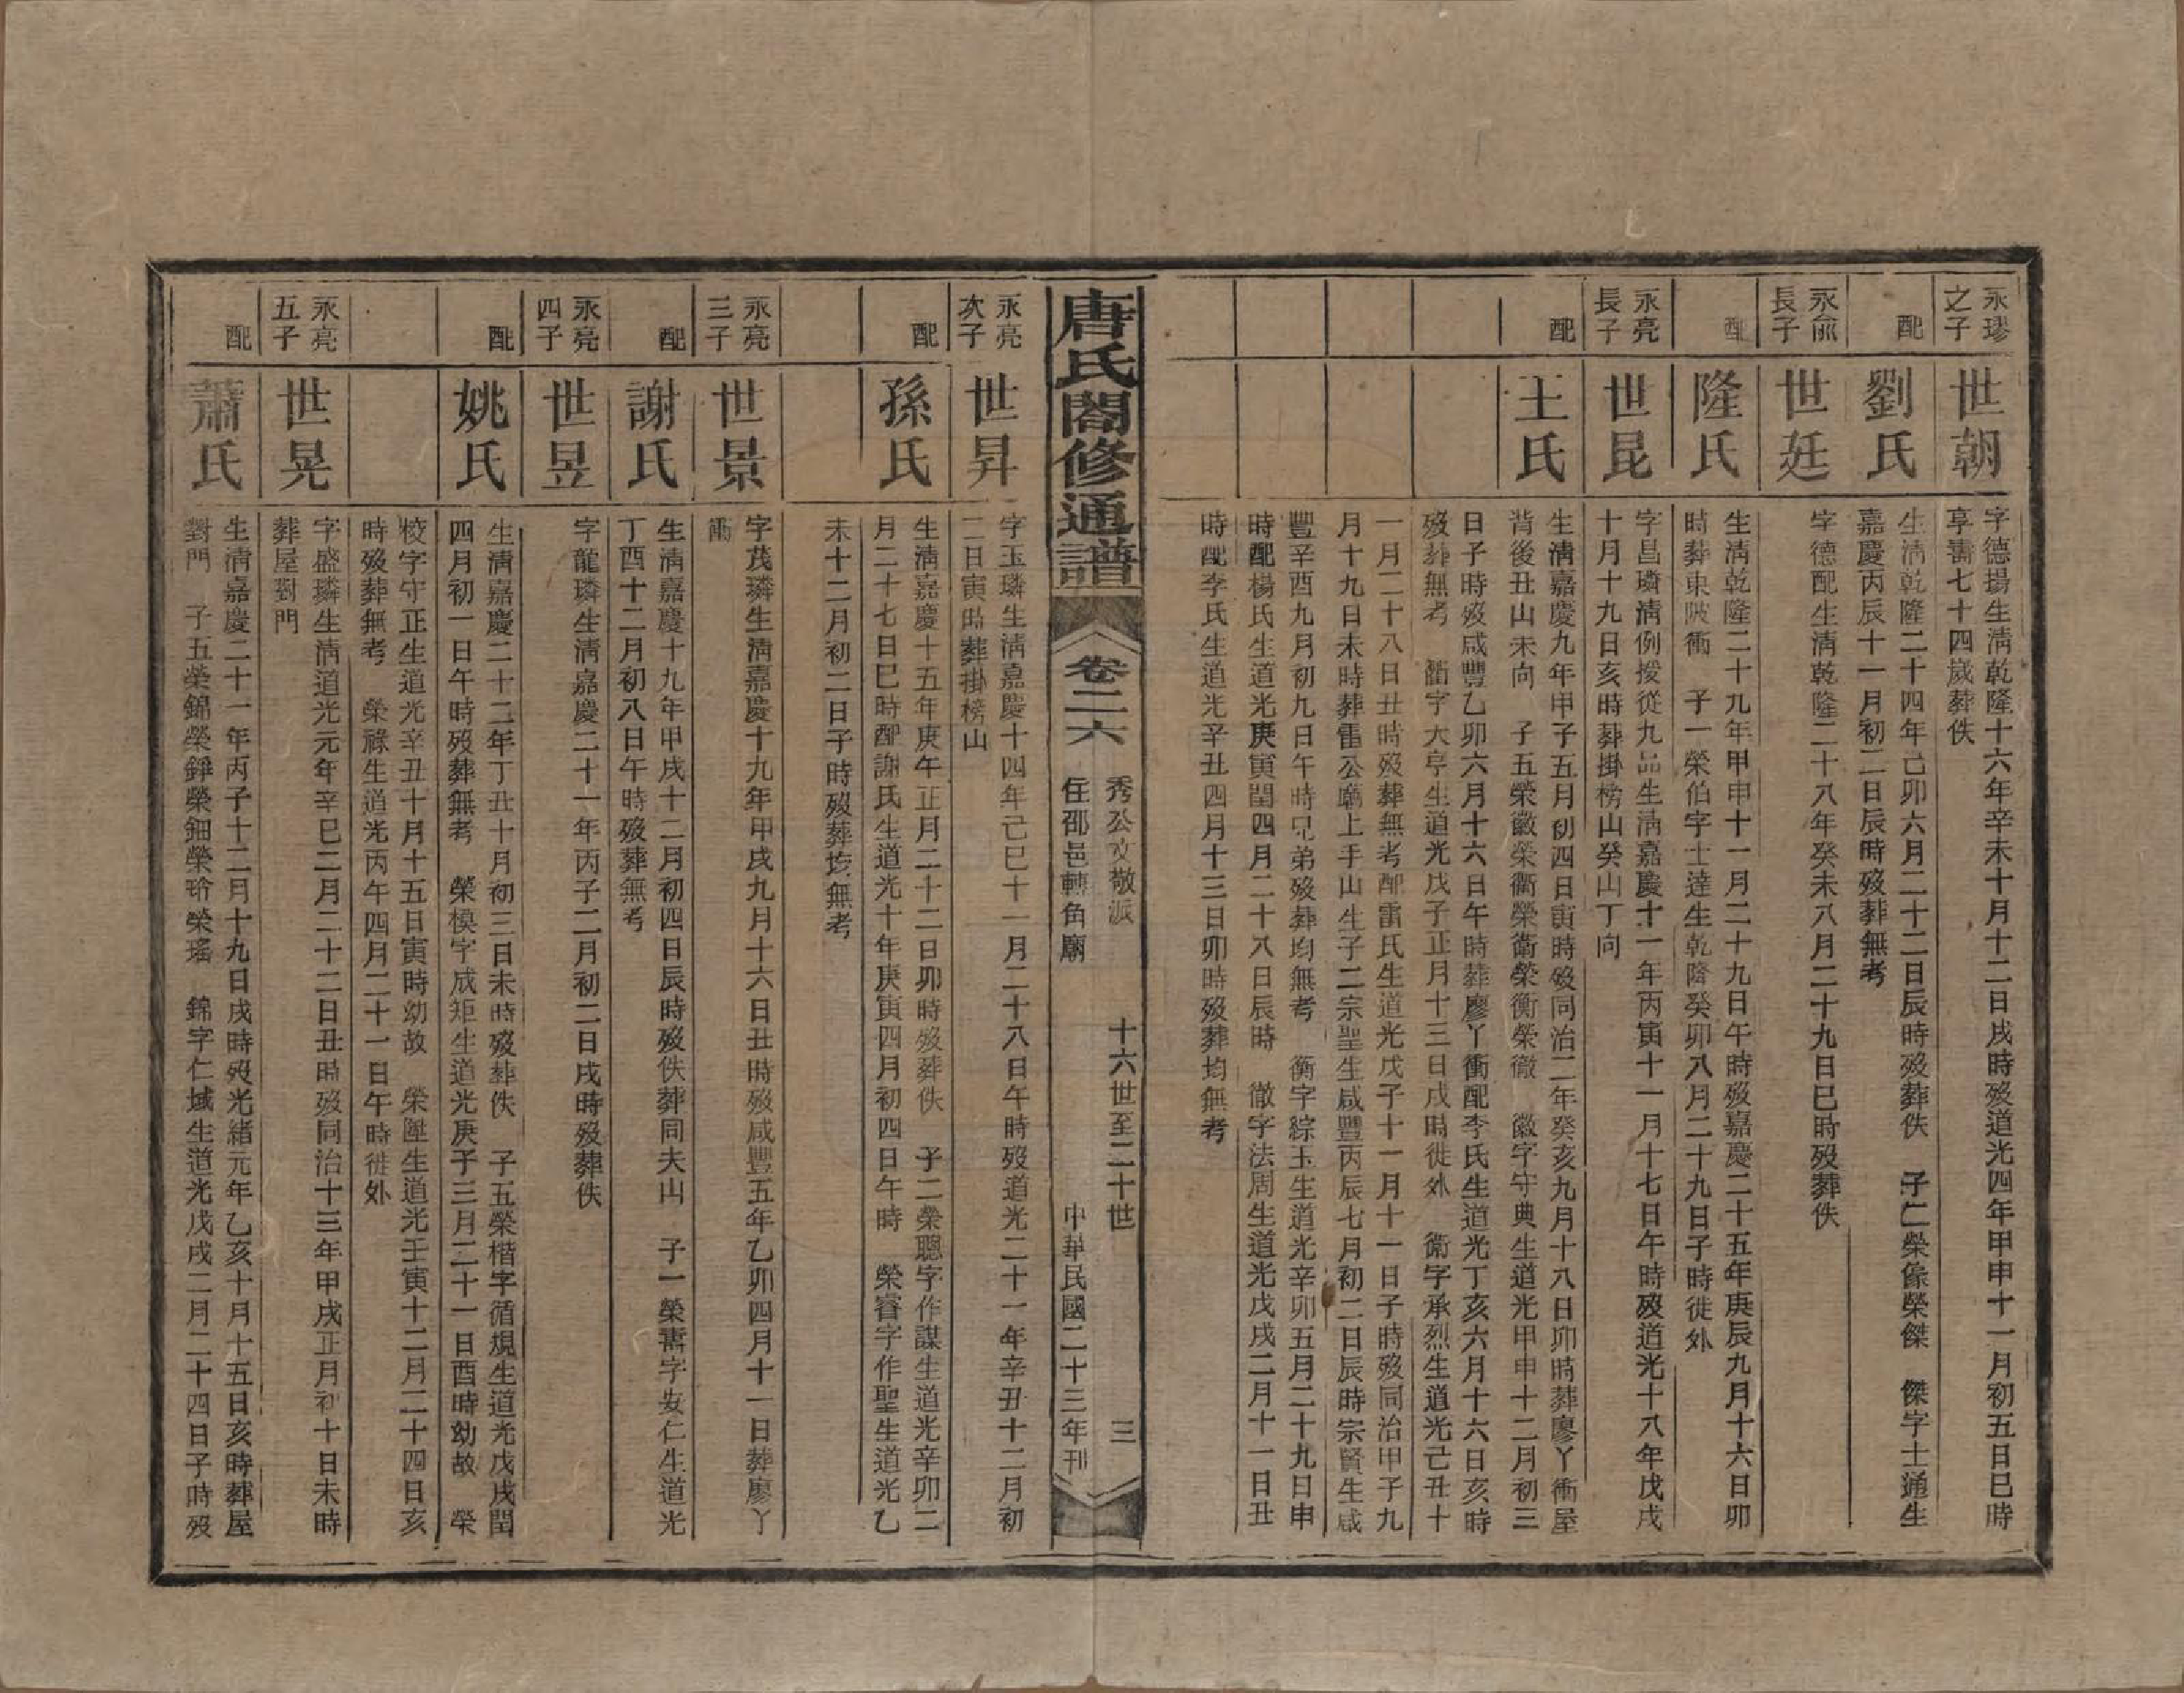 永璆之子
世朝
字德揚生淸乾隆十六年辛未十月十二日戌時歿道光四年甲申十一月初五日巳時
享壽七十四歲葬佚
配
劉氏
生淸乾隆二十四年己卯六月二十二日辰時歿葬佚　子仁榮傢榮傑　傑字士通生
嘉慶丙辰十一月初二日辰時歿葬無考
永兪長子
世廷
字德配生淸乾隆二十八年癸未八月二十九日巳時歿葬佚
配
隆氏
生淸乾隆二十九年甲申十一月二十九日午時歿嘉慶二十五年庚辰九月十六日卯
時葬東陂衝　子一榮伯字士達生乾隆癸卯八月二十九日子時徙外
永亮長子
世昆
字昌璘淸例授從九品生淸嘉慶十一年丙寅十一月十七日午時歿道光十八年戊戌
十月十九日亥時葬掛榜山癸山丁向
配
王氏
生淸嘉慶九年甲子五月初四日寅時歿同治二年癸亥九月十八日卯時葬廖丫衝屋
背後丑山未向　子五榮徽榮衢榮衛榮衡榮徹　徽字守典生道光甲申十二月初三
日子時歿咸豐乙卯六月十六日午時葬廖丫衝配李氏生道光丁亥六月十六日亥時
歿葬無考　衢字大亨生道光戊子正月十三日戌時徙外　衛字承烈生道光己丑十
一月二十八日丑時歿葬無考配雷氏生道光戊子十一月十一日子時歿同治甲子九
月十九日未時葬雷公㘭上手山生子二宗聖生咸豐丙辰七月初二日辰時宗賢生咸
豐辛酉九月初九日午時兄弟歿葬均無考　衡字綜玉生道光辛卯五月二十九日申
時配楊氏生道光庚寅閏四月二十八日辰時　徹字法周生道光戊戌二月十一日丑
時配李氏生道光辛丑四月十三日卯時歿葬均無考
唐氏闔修通譜
卷二六
秀公文敬派　十六世至二十世　三
住邵邑轉角廟　中華民國二十三年刊
永亮次子
世昇
字玉璘生淸嘉慶十四年己巳十一月二十八日午時歿道光二十一年辛丑十二月初
二日寅時葬掛榜山
配
孫氏
生淸嘉慶十五年庚午正月二十二日卯時歿葬佚　子二榮聰字作謀生道光辛卯二
月二十七日巳時配謝氏生道光十年庚寅四月初四日午時　榮睿字作聖生道光乙
未十二月初二日子時歿葬均無考
永亮三子
世景
字茂璘生淸嘉慶十九年甲戌九月十六日丑時歿咸豐五年乙卯四月十一日葬廖丫
衝
配
謝氏
生淸嘉慶十九年甲戌十二月初四日辰時歿佚葬同夫山　子一榮壽字安仁生道光
丁酉十二月初八日午時歿葬無考
永亮四子
世昱
字龍璘生淸嘉慶二十一年丙子二月初二日戌時歿葬佚
配
姚氏
生淸嘉慶二十二年丁丑十月初三日未時歿葬佚　子五榮楷字循規生道光戊戌閏
四月初一日午時歿葬無考　榮模字成矩生道光庚子三月二十一日酉時幼故　榮
校字守正生道光辛丑十月十五日寅時幼故　榮陞生道光壬寅十二月二十四日亥
時歿葬無考　榮祿生道光丙午四月二十一日午時徙外
永亮五子
世晃
字盛璘生淸道光元年辛巳二月二十二日丑時歿同治十三年甲戌正月初十日未時
葬屋對門
配
蕭氏
生淸嘉慶二十一年丙子十二月十九日戌時歿光緒元年乙亥十月十五日亥時葬屋
對門　子五榮錦榮錚榮鈿榮瑜榮瑤　錦字仁域生道光戊戌二月二十四日子時歿